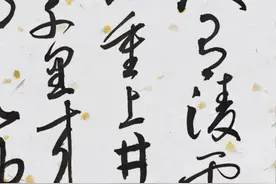 有凌雲
重上井
千里来